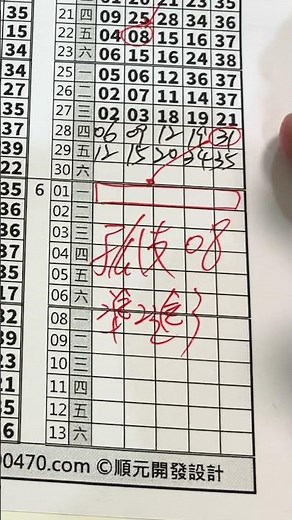 35 21 四 09 25 28 34 36
15 22 五 04 08 15 16 37
34 23 六 06 15 16 24 38
34 25 一 05 06 12 36 37
27 26 二 02 07 11 14 37
35 27 三 02 03 18 19 21
37 28 四 06 09 12 19 31
39 29 五 12 15 20 34 35
22 30 六
35 6 01 一
36 02 二
36 03 三
37 04 四
35 05 五
17 06 六
32 08 一
39 09 二
23 10 三
21 11 四
35 12 五
6 13 六
孤支 08
00470.com ©順元開發設計